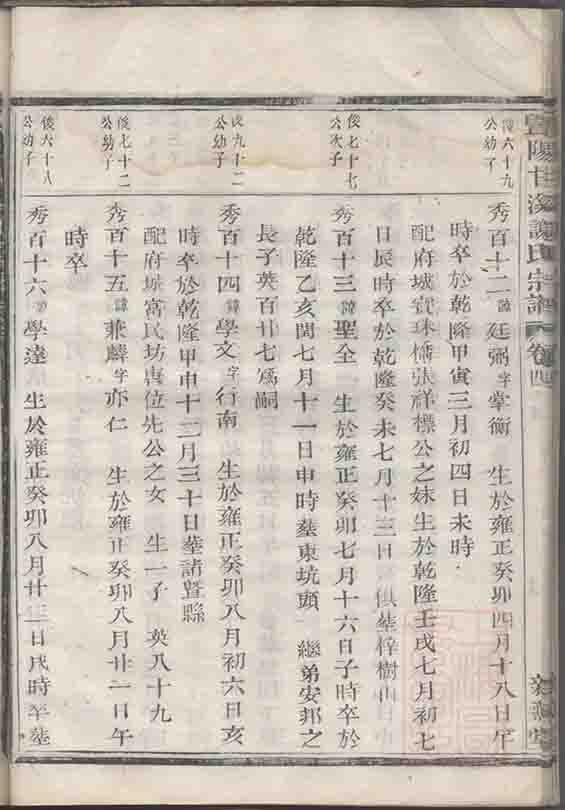 暨陽甘溪謝氏宗譜 卷四
俊六十九
公幼子
秀百十二 諱 廷弼 字 掌衡 生於雍正癸卯四月十八日午
時卒於乾隆甲寅三月初四日未時
配府城寶珠橋張祥標公之妹生於乾隆壬戌七月初七
日辰時卒於乾隆癸未七月十三日 俱塟梓樹山
俊七十七
公次子
秀百十三 諱 聖全 生於雍正癸卯七月十六日子時卒於
乾隆乙亥閏七月十一日申時塟東坑頭 繼弟安邦之
長子英百廿七爲嗣
俊九十二
公幼子
秀百十四 諱 學文 字 行南 生於雍正癸卯八月初六日亥
時卒於乾隆甲申十二月三十日塟諸暨縣
配府城富民坊唐位先公之女 生一子 英八十九
俊七十二
公幼子
秀百十五 諱 兼麟 字 亦仁 生於雍正癸卯八月廿二日午
時卒
俊六十八
公幼子
秀百十六 諱 學遠 生於雍正癸卯八月廿三日戌時卒塟